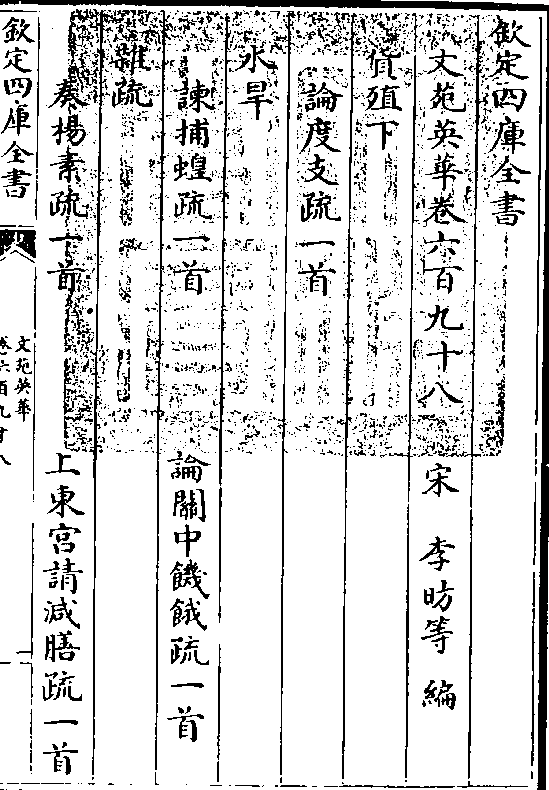 欽定四庫全書
文苑英華卷六百九十八　宋　李昉等　編
貨殖下
論度支疏一首
水旱
諫捕蝗疏一首　論關中饑餓疏一首
雜疏
奏楊素疏一首　上東宮請減膳疏一首
欽定四庫全書
文苑英華
卷六百九十八
一